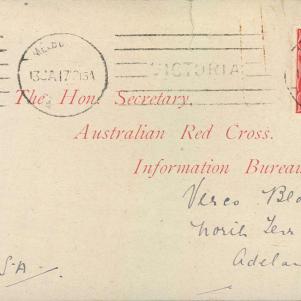 13 JA 17
VICTORIA
The Hon. Secretary,
Australian Red Cross.
Information Bureau
Verco
North Terr
Adela
S.A